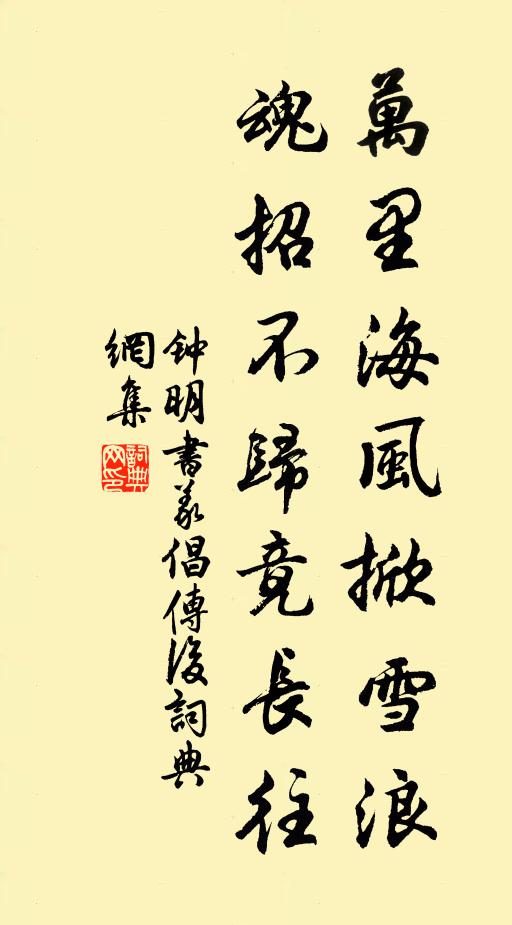 萬里海風掀雪浪
魂招不歸竟長往
钟明書羲倡傳後詞典
網集
詞典
网印